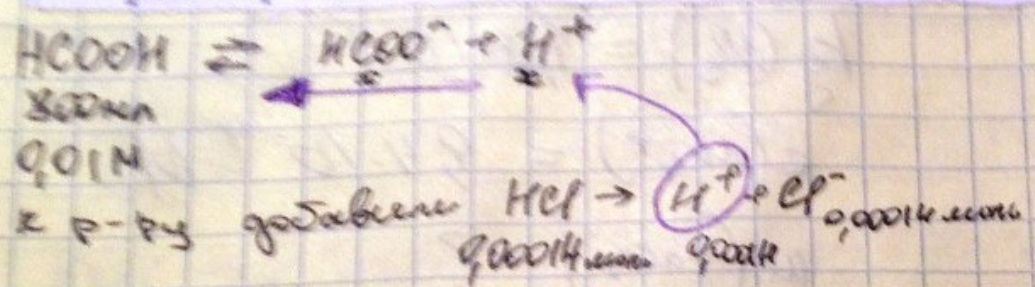 HCOOH ⇌ HCOO⁻ + H⁺
x x
300мл
0,01М
к р-ру добавили HCl → H⁺ + Cl⁻
0,00014 моль 0,00014 0,00014 моль